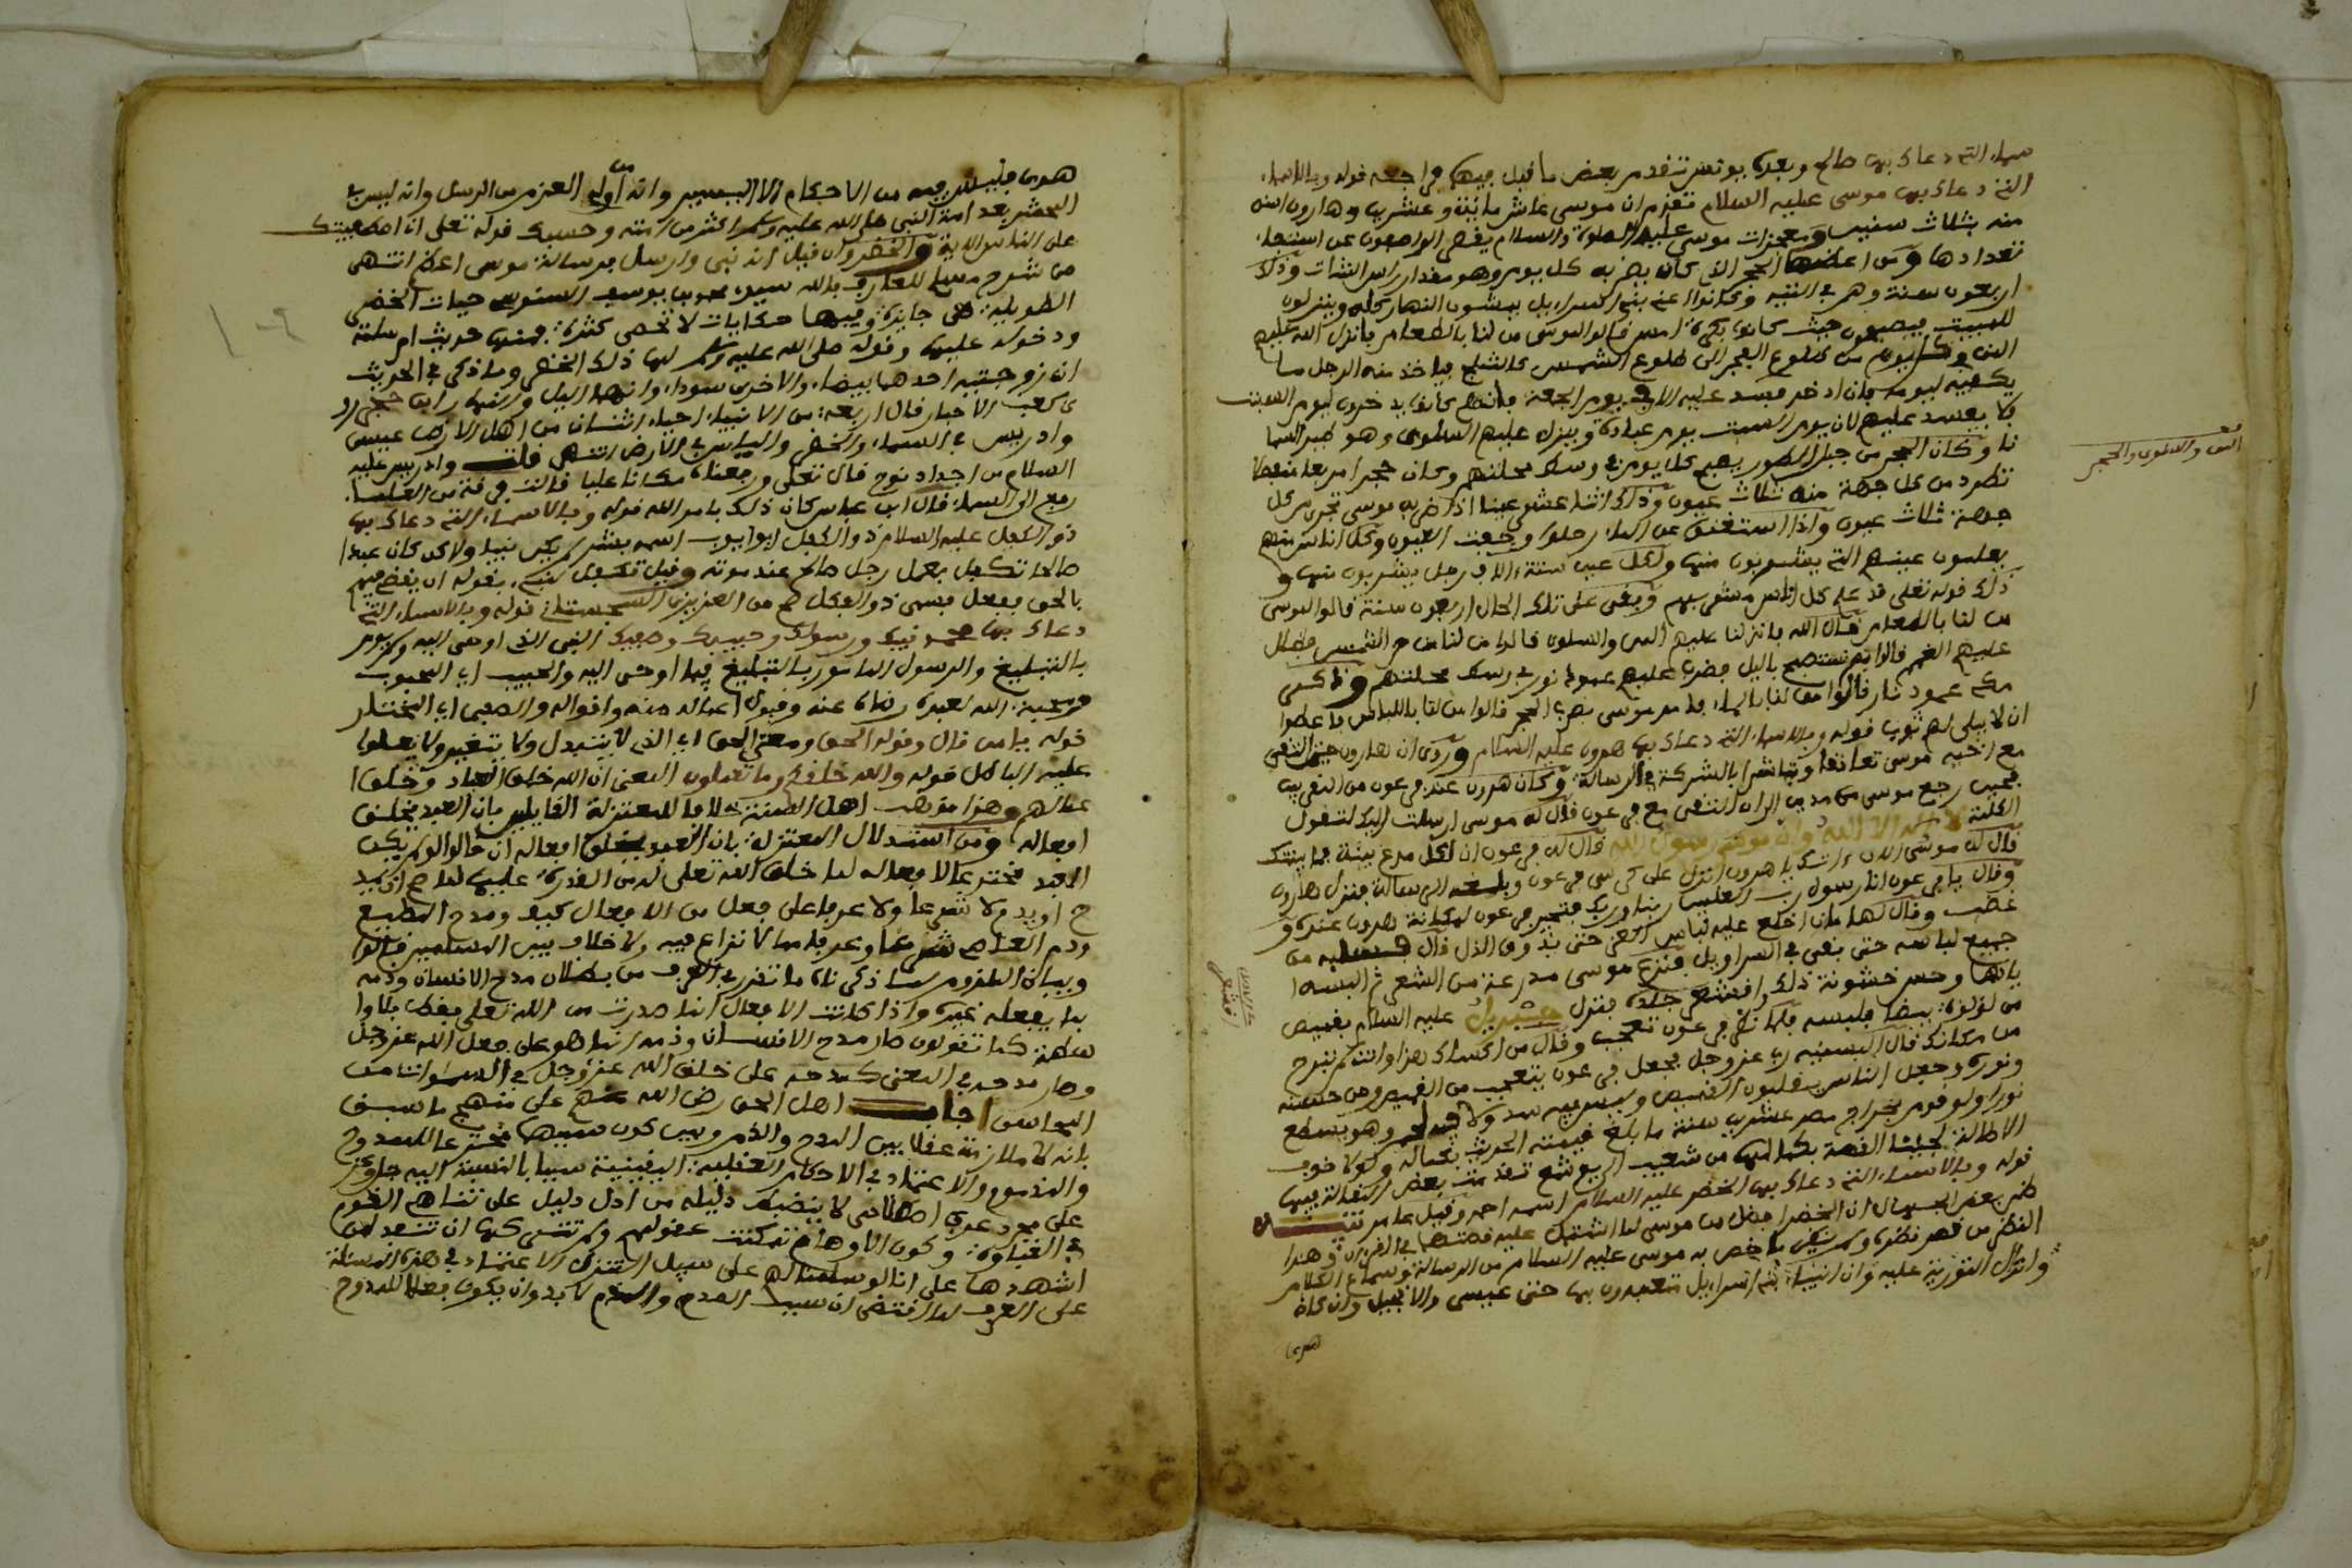 سماء التي دعاك بها صالح وبعده يونس تقدم بعض ما قيل فيهما فراجعه قوله وبالاسماء
التي دعاك بها موسى عليه السلام تقدم ان موسى عاش مائة وعشرين وهارون اسن
منه بثلاث سنين ومعجزات موسى عليه الصلاة والسلام يقصر الواصفون عن استيفاء
تعدادها ومن اعظمها الحجر الذي كان يضربه كل يوم وهو مقدار راس الشاة وذلك
اربعون سنة وهم في التيه وكانوا اعني بني اسرائيل يمشون النهار كله وينزلون
للمبيت فيصبحون حيث كانوا بكرة امس قالوا لموسى من لنا بالطعام فانزل الله عليهم
المن من طلوع الفجر الى طلوع الشمس كالثلج فياخذ منه الرجل ما
يكفيه ليومه فان ادخر فسد عليه الا في يوم الجمعة فانهم كانوا يدخرون ليوم السبت
فلا يفسد عليهم لان يوم السبت يوم عبادة وينزل عليهم السلوى وهو طير السما
نا وكان الحجر من جبل الطور يضع كل يوم في وسط محلتهم وكان حجرا مربعا
تطرد من كل جهة منه ثلاث عيون وذلك اثنا عشر عينا اذا ضربه موسى تجري من كل
جهة ثلاث عيون واذا استغنوا عن الماء رحلوا وجفت العيون وكل اناس منهم
يعلمون عينهم التي يشربون منها ولكل عين ستة الاف رجل يشربون منها و
ذلك قوله تعلى قد علم كل اناس مشربهم وبقي على تلك الحال اربعون سنة قالوا لموسى
من لنا بالطعام قال الله فانزلنا عليهم المن والسلوى قالوا من لنا من حر الشمس فظلل
عليهم الغمم قالوا بم نستصبح باليل فضرب عليهم عمود نور في وسط محلتهم
عمود نار قالوا من لنا بالماء فامر موسى بضرب الحجر قالوا من لنا باللباس فاعطوا
ان لا يبلى لهم ثوب قوله وبالاسماء التي دعاك بها هرون عليه السلام وروي ان هارون حين التقى
مع اخيه موسى تعانقا وتباشرا بالشركة في الرسالة وكان هرون عند فرعون من
رجع موسى من مدين الى ان التقى مع فرعون قال له موسى ارسلت اليك لتقول
الكلمة لا اله الا الله وان موسى رسول الله قال له فرعون ان لكل مدع بينة فما بينتك
قال له موسى يا هرون انزل على كرسي فرعون وبلغه الرسالة فنزل هارون
وقال يا فرعون انا رسول رب العلمين ربنا وربك فتحير فرعون لمكانة هرون عنده و
غضب وقال لهامان اخلع عليه لباس العز حتى يذوق الذل قال من
جميع لباسه حتى بقي في السراويل فنزع موسى مدرعة من الشعر ثم البسه
ياها وحس خشونة ذلك اقشعر جلده فنزل جبريل عليه السلام بقميص
من لؤلؤة بيضا فلبسه فلما نظر فرعون تعجب وقال من اكساك هذا وانت لم تبرح
من مكانك قال البسنيه ربي عز وجل فجعل فرعون يتعجب من القميص ومن حسنه
ونوره وجعل الناس يقلبون القميص وليس فيه سدى ولا لحم وهو يسطع
نورا ولو قوم بخراج مصر عشرين سنة ما بلغ قيمته الحديث بكماله ولولا خوف
الاطالة لجلبنا القصة بكمالها من شعيب الى يوشع تقدمت بعض المقالة فيها
قوله وبالاسماء التي دعاك بها الخضر عليه السلام اسمه احمد وقيل عامر تنبيه
ظن بعض الجهال ان الخضر افضل من موسى لما اشتمل عليه قصتهما في القران وهذا
النظر من قصر نظره ولم ينظر ما خص به موسى عليه السلام من الرسالة وسماع الكلام
وانزال التورية عليه وان انبياء بني اسرائيل متعبدون بها حتى عيسى والانجيل وان كان
هدى
المن والسلوى والحجر
اقشعر
هدى فليس فيه من الاحكام الا اليسير وانه من اولي العزم من الرسل وانه ليس في
المحشر بعد امة النبي صلى الله عليه وسلم اكثر من امته وحسبك قوله تعلى اني اصطفيتك
على الناس الاية والخضر وان قيل انه نبي وارسل فرسالة موسى اعظم انتهى
من شرح مسلم للعارف بالله سيدي محمد بن يوسف السنوسي حيات الخضر
الطويلة جايزة وفيها حكايات لا تحصى كثرة فمنها حديث ام سلمة
ودخوله عليها وقوله صلى الله عليه وسلم لها ذلك الخضر وما ذكر في الحديث
ان زوجتيه احدهما بيضاء والاخرى سوداء وانهما اليل والنهار
كعب الاحبار قال اربعة من الانبياء احياء اثنان من اهل الارض عيسى
وادريس في السماء والخضر والياس في الارض انتهى قلت وادريس عليه
السلام من اجداد نوح قال تعلى ورفعناه مكانا عليا
رفع الى السماء قال ابن عباس كان ذلك بامر الله قوله وبالاسماء التي دعاك بها
ذو الكفل عليه السلام ذو الكفل ابو ايوب اسمه بشر لم يكن نبيا ولاكن كان عبدا
صالحا تكفل بعمل رجل صالح عند موته وقيل تكفل لنبي بقوله ان يقضي بينهم
بالحق ففعل فسمي ذو الكفل صح من العزيزي السجستاني قوله وبالاسماء التي
دعاك بها محمد نبيك ورسولك وحبيبك وصفيك النبي الذي اوحي اليه ولم يومر
بالتبليغ والرسول المامور بالتبليغ فيما اوحي اليه والحبيب اي المحبوب
ومحبة الله لعبده رضاه عنه وقبول اعماله منه واقواله والصفي اي المختار
قوله يا من قال وقوله الحق ومعنى الحق اي الذي لا يتبدل ولا يتغير ولا
عليه الباطل قوله والله خلقكم وما تعملون المعنى ان الله خلق العباد وخلق ا
عمالهم وهذا مذهب اهل السنة خلافا للمعتزلة القايلين بان العبد يخلق
افعاله ومن استدلال المعتزلة بان العبد يخلق افعاله ان قالوا لو لم يكن
العبد مخترعا لافعاله لما خلق الله تعلى له من القدرة عليها لما صح ان
ح او يذم لا شرعا ولا عرفا على فعل من الافعال كيف ومدح المطيع
وذم العاصي شرعا وعرفا مما لا نزاع فيه ولا خلاف بين المسلمين
وبيان الملازمة ما ذكرناه ما تقرر في العرف من بطلان مدح الانسان وذمه
بما يفعله غيره واذا كانت الافعال انما صدرت من الله تعلى فقط بلا وا
سطة كما تقولون صار مدح الانسان وذمه انما هو على فعل الله عز وجل
وصار مدحه في المعنى كمدحه على خلق الله عز وجل في السموات من
المحاسن اجاب اهل الحق رضي الله عنهم على منهج ما سبق
بانه لا ملازمة عقلا بين المدح والذم وبين كون سببها مخترعا للممدوح
والمذموم والاعتماد في الاحكام العقلية اليقينية سيما بالنسبة اليه جل وعز
على مجرد عرف اصطلاحي لا ينضبط دليله من ادل دليل على تناهي القوم
في الغباوة وكون الاوهام تمكنت عقولهم ولم تنتش كلها ان تتعدى
اشهدها على انا لو سلمنا لهم على سبيل التنزل الاعتماد في هذه المسئلة
على العرف لما اقتضى ان سبب المدح والذم لا بد وان يكون فعلا للممدوح